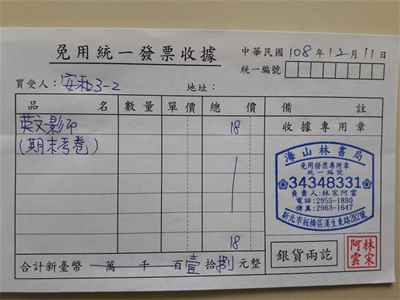 免用統一發票收據
中華民國108年12月11日
統一編號
買受人：安和3-2 地址：
品名 數量 單價 總價 備註
英文影印 18 收據專用章
(期末考卷)
海山林書局
免用發票專用章
統一編號
34348331
負責人：林家阿雲
電話：2955-1830
傳真：2963-1647
新北市板橋區漢生東路312號
18
合計新臺幣 萬 千 百壹拾捌元整 銀貨兩訖
林家阿雲